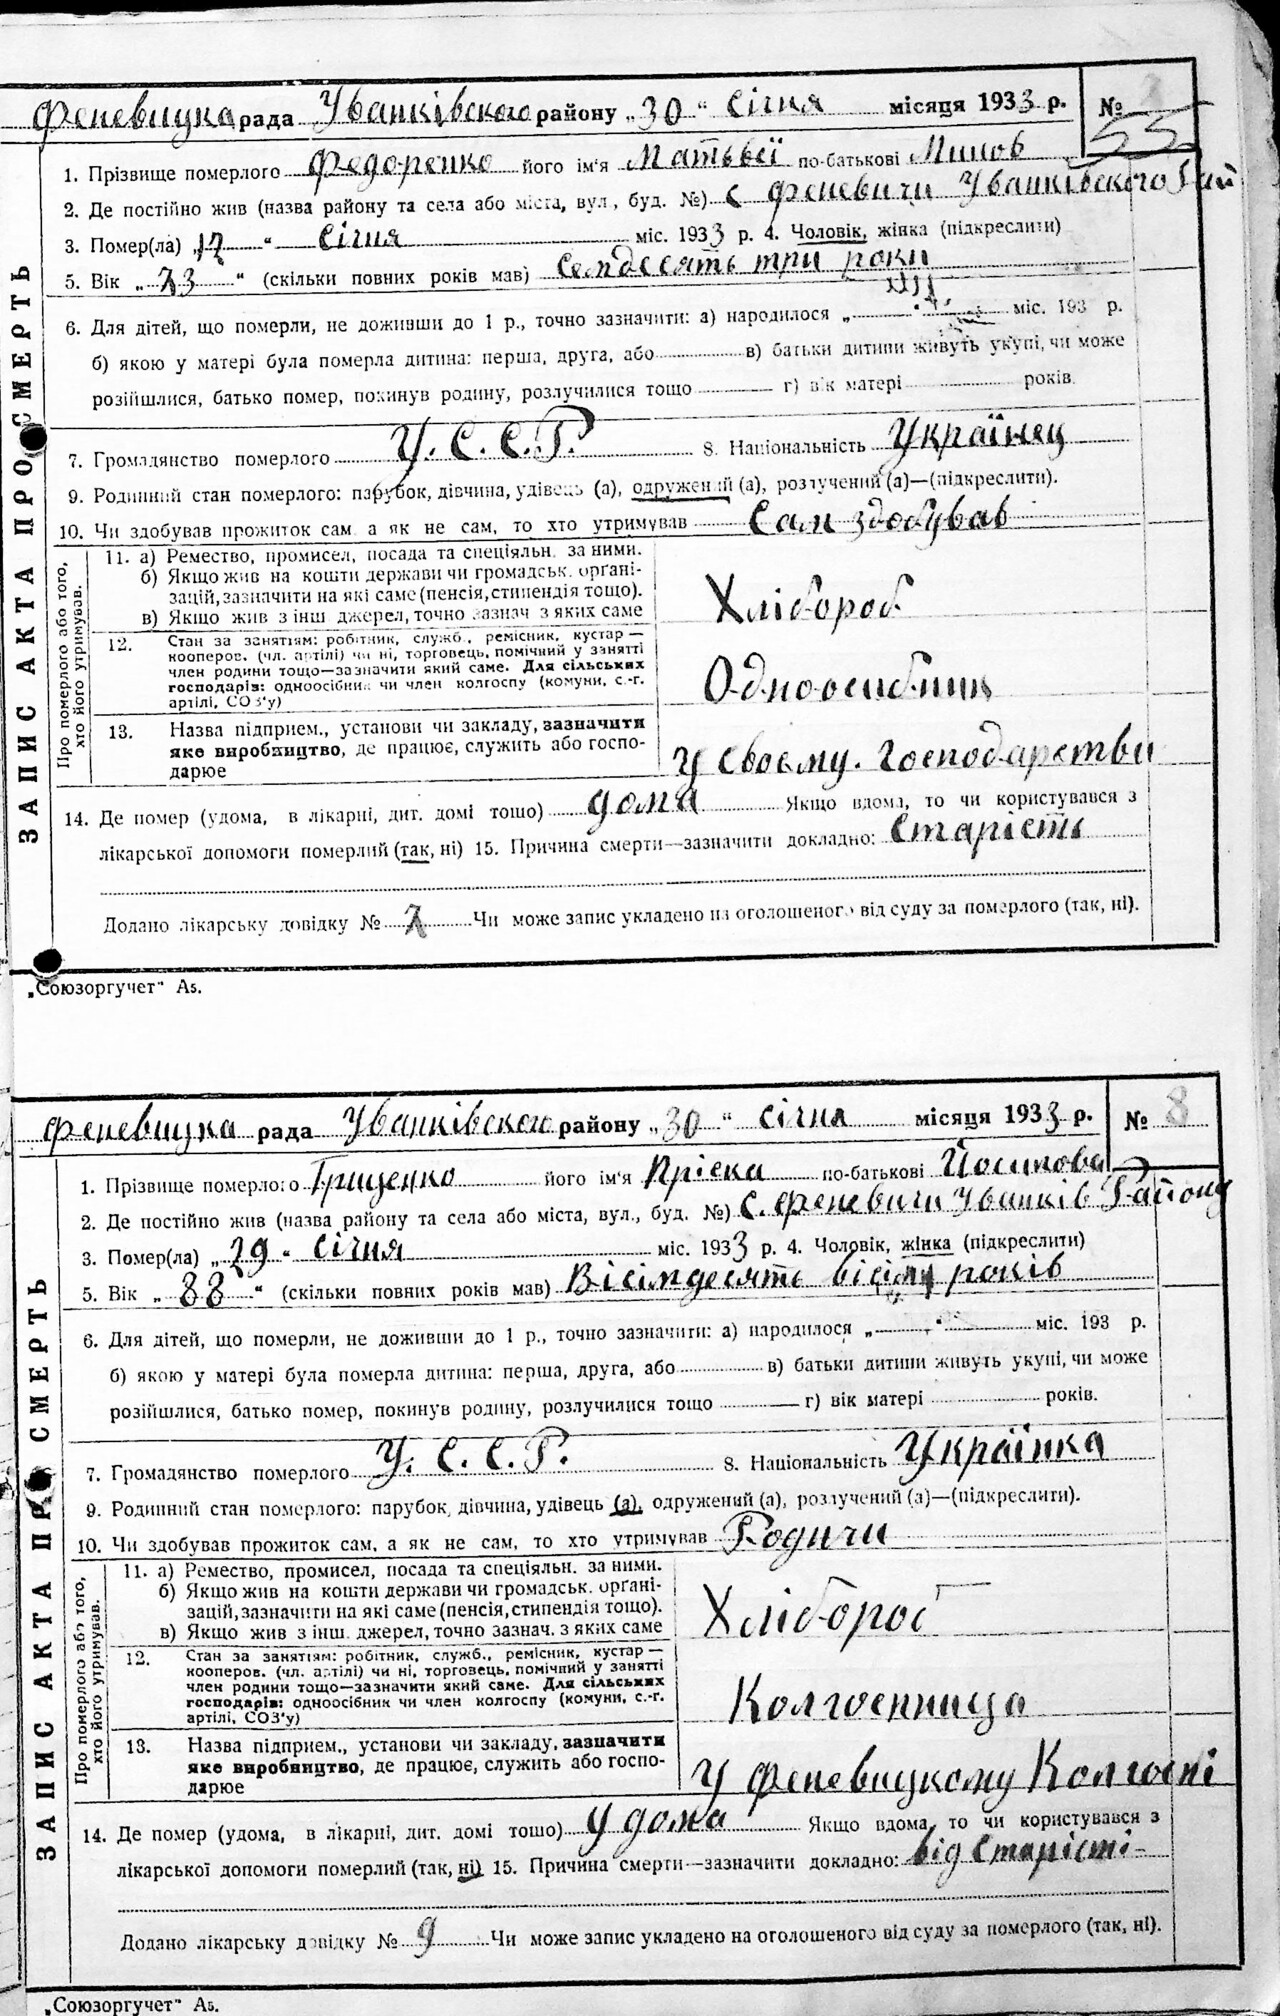 Феневицка рада Уванківського району „30“ Січня місяця 1933 р. №
55
ЗАПИС АКТА ПРО СМЕРТЬ
1. Прізвище померлого Федоренко його ім'я Матьвєї по-батькові Минов
2. Де постійно жив (назва району та села або міста, вул., буд. №) с Феневичи Уванківского Рай
3. Помер(ла) „17“ Січня міс. 1933 р. 4. Чоловік, жінка (підкреслити)
5. Вік „73“ (скільки повних років мав) Семдесять три роки
6. Для дітей, що померли, не доживши до 1 р., точно зазначити: а) народилося „ “ міс. 193 р.
б) якою у матері була померла дитина: перша, друга, або в) батьки дитини живуть укупі, чи може
розійшлися, батько помер, покинув родину, розлучилися тощо г) вік матері років.
7. Громадянство померлого У.С.С.Р. 8. Національність Українец
9. Родинний стан померлого: парубок, дівчина, удівець (а), одружений (а), розлучений (а)—(підкреслити).
10. Чи здобував прожиток сам а як не сам, то хто утримував Сам здобував
Про померлого або того, хто його утримував.
11. а) Ремество, промисел, посада та спеціяльн. за ними.
б) Якщо жив на кошти держави чи громадськ. органі-
зацій, зазначити на які саме (пенсія, стипендія тощо).
в) Якщо жив з інш джерел, точно зазнач з яких саме
Хлібороб
12. Стан за занятіям: робітник, служб., ремісник, кустар —
кооперов. (чл. артілі) чи ні, торговець, помічний у занятті
член родини тощо—зазначити який саме. Для сільських
господарів: одноосібник чи член колгоспу (комуни, с.-г.
артілі, СОЗ'у)
Одноосибник
13. Назва підприєм., установи чи закладу, зазначити
яке виробництво, де працює, служить або госпо-
дарює
у своєму. Господарстви
14. Де помер (удома, в лікарні, дит. домі тощо) дома Якщо вдома, то чи користувався з
лікарської допомоги померлий (так, ні) 15. Причина смерти—зазначити докладно: Старість
Додано лікарську довідку № 7 Чи може запис укладено на оголошеного від суду за померлого (так, ні).
„Союзоргучет“ А5.
Феневицка рада Уванківского району „30“ Січня місяця 1933 р. № 8
ЗАПИС АКТА ПРО СМЕРТЬ
1. Прізвище померлого Грищенко його ім'я Пріска по-батькові Йосипова
2. Де постійно жив (назва району та села або міста, вул., буд. №) с. Феневичи Уванків Району
3. Помер(ла) „29“ Січня міс. 1933 р. 4. Чоловік, жінка (підкреслити)
5. Вік „88“ (скільки повних років мав) Вісімдесять вісім років
6. Для дітей, що померли, не доживши до 1 р., точно зазначити: а) народилося „ “ міс. 193 р.
б) якою у матері була померла дитина: перша, друга, або в) батьки дитини живуть укупі, чи може
розійшлися, батько помер, покинув родину, розлучилися тощо г) вік матері років.
7. Громадянство померлого У.С.С.Р. 8. Національність Українка
9. Родинний стан померлого: парубок, дівчина, удівець (а), одружений (а), розлучений (а)—(підкреслити).
10. Чи здобував прожиток сам, а як не сам, то хто утримував Родичи
Про померлого або того, хто його утримував.
11. а) Ремество, промисел, посада та спеціяльн. за ними.
б) Якщо жив на кошти держави чи громадськ. органі-
зацій, зазначити на які саме (пенсія, стипендія тощо).
в) Якщо жив з інш. джерел, точно зазнач. з яких саме
Хлібороб
12. Стан за занятіям: робітник, служб., ремісник, кустар —
кооперов. (чл. артілі) чи ні, торговець, помічний у занятті
член родини тощо—зазначити який саме. Для сільських
господарів: одноосібник чи член колгоспу (комуни, с.-г.
артілі, СОЗ'у)
Колгоспница
13. Назва підприєм., установи чи закладу, зазначити
яке виробництво, де працює, служить або госпо-
дарює
У Феневицкому Колгоспі
14. Де помер (удома, в лікарні, дит. домі тощо) У дома Якщо вдома, то чи користувався з
лікарської допомоги померлий (так, ні) 15. Причина смерти—зазначити докладно: від Старісті
Додано лікарську довідку № 9 Чи може запис укладено на оголошеного від суду за померлого (так, ні).
„Союзоргучет“ А5.